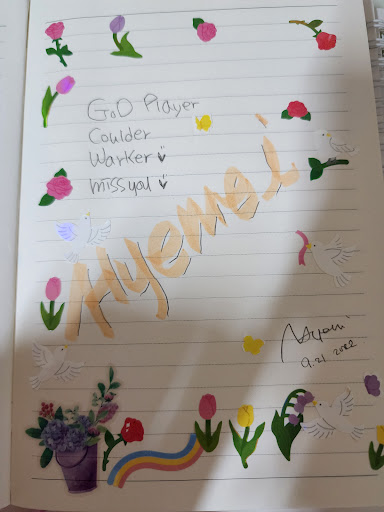 GOD Player
Coulder
Warker
missyal
Hyemei
9.21 2022